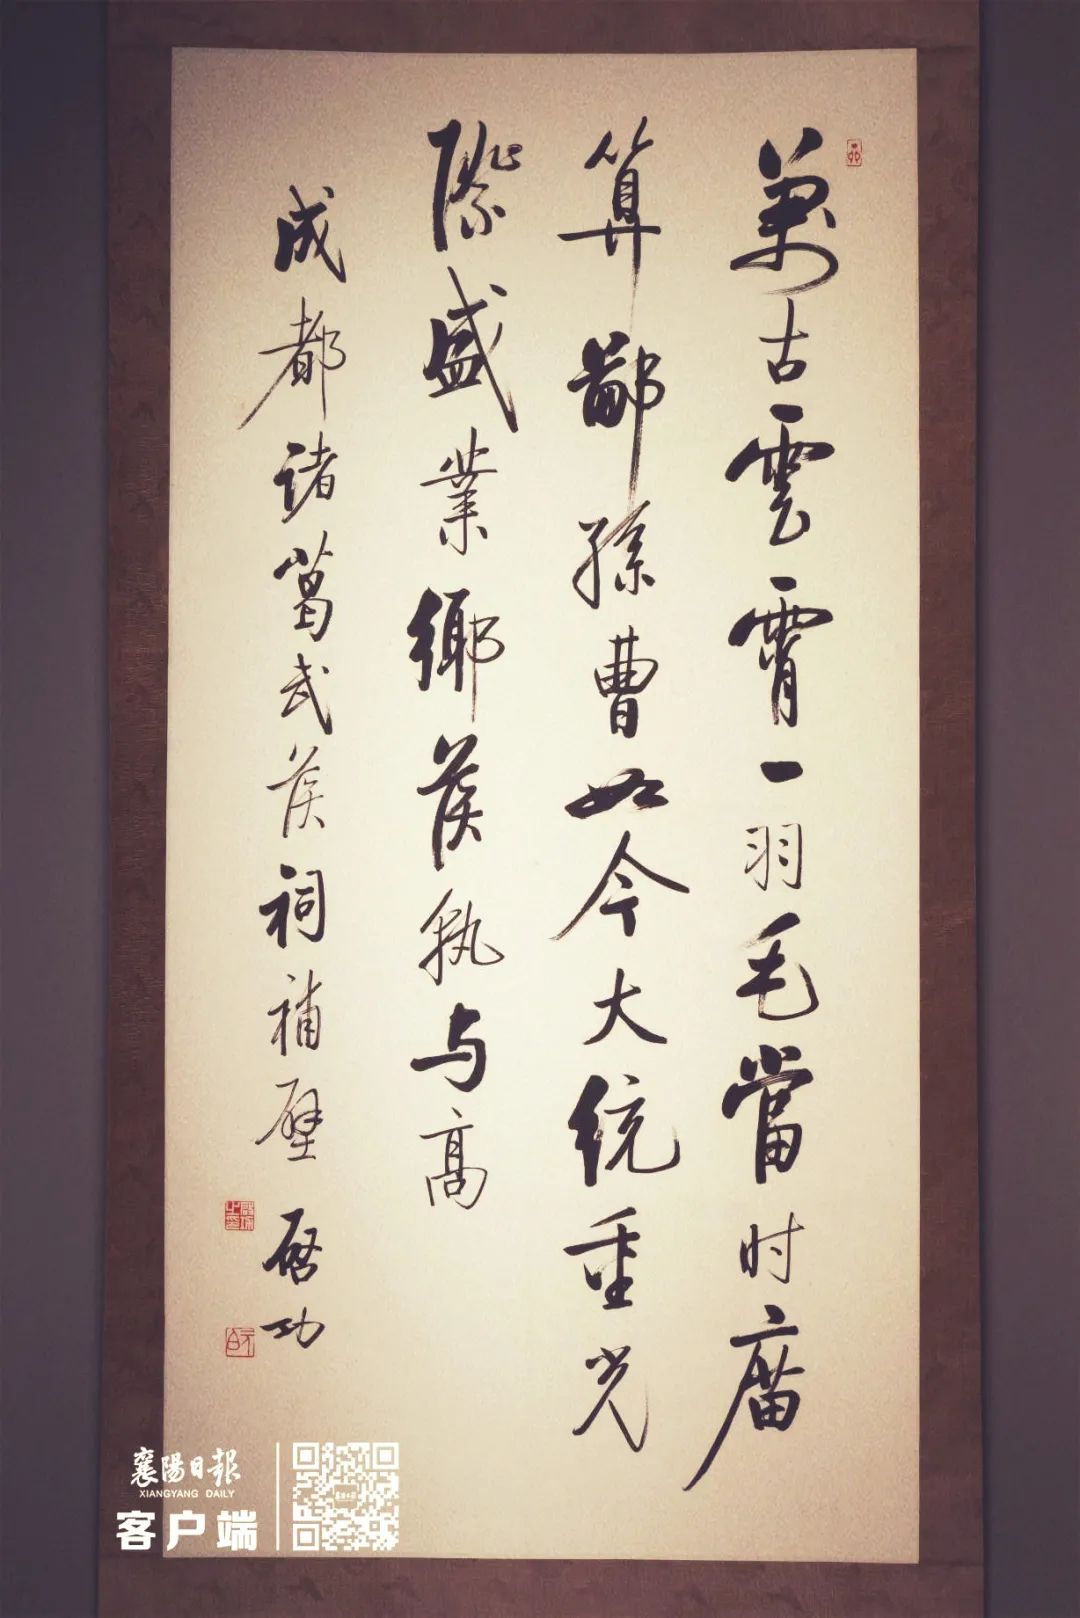 萬古雲霄一羽毛當时廟
算鄙孫曹如今大統重光
際盛業鄉侯孰与高
成都诸葛武侯祠補壁 启功
襄陽日報
XIANGYANG DAILY
客户端